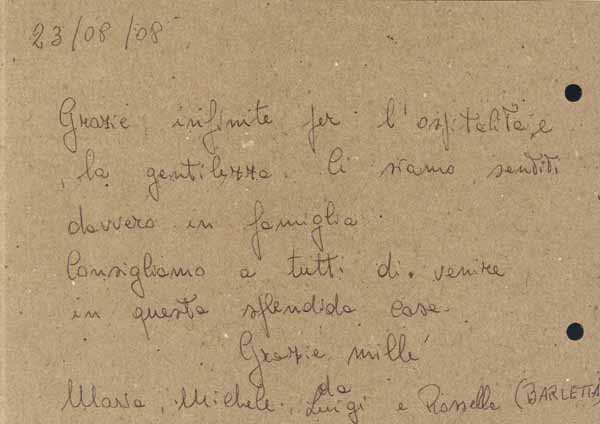 23/08/08
Grazie infinite per l'ospitalità e
la gentilezza. Ci siamo sentiti
davvero in famiglia.
Consigliamo a tutti di venire
in questa splendida casa.
Grazie mille
da
Maria, Michele, Luigi e Rossella (BARLETTA)